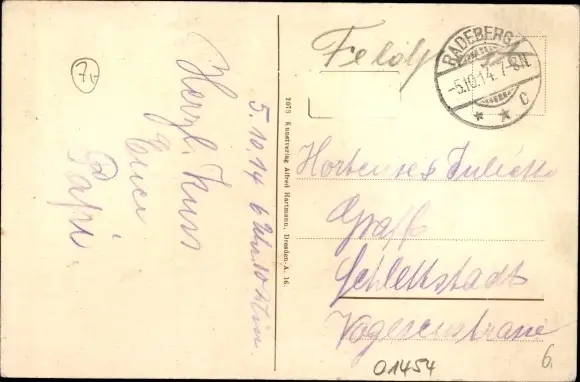 7v
5.10.14 6 Uhr 10 Min.
Herzl. Kuss
Euer
Papi.
2073 Kunstverlag Alfred Hartmann, Dresden-A. 16.
Feldpost
RADEBERG
-5.10.14. 7-8N.
* * c
Hortense & Juliette
Graff
Schlettstadt
Vogesenstrasse
6.
01454